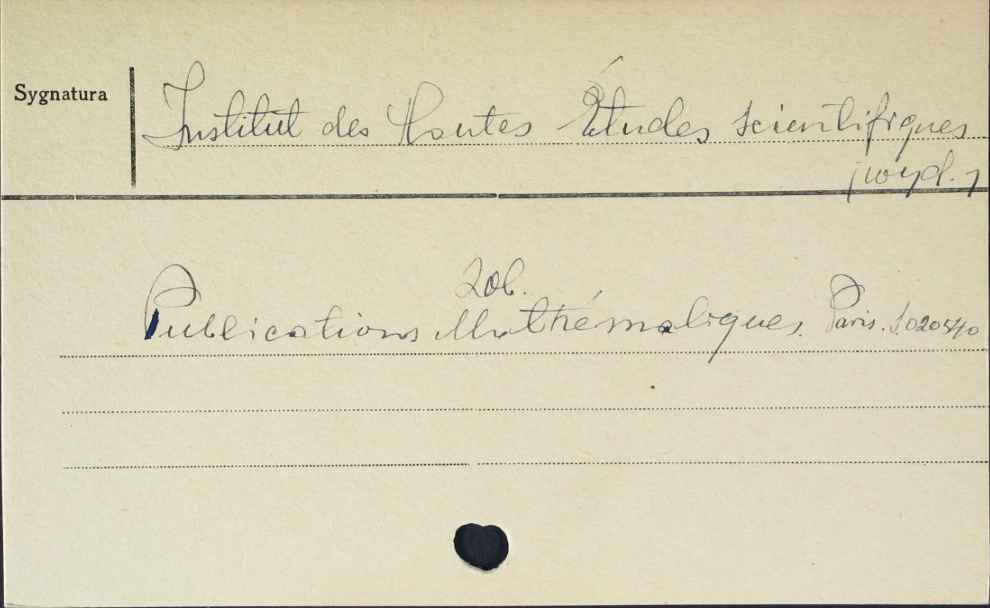 Sygnatura
Institut des Hautes Études scientifiques
(wyd.)
Zob.
Publications Mathématiques. Paris. S.020540